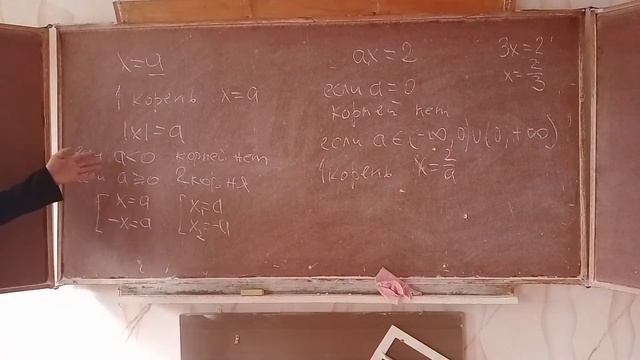 x=a
1 корень x=a
|x|=a
если a<0 корней нет
если a⩾0 2 кор ня
[ x=a
-x=a
[ x₁=a
x₂=-a
ax=2
если a=0
корней нет
если a∈(-∞,0)∪(0,+∞)
1 корень x=2/a
3x=2
x=2/3